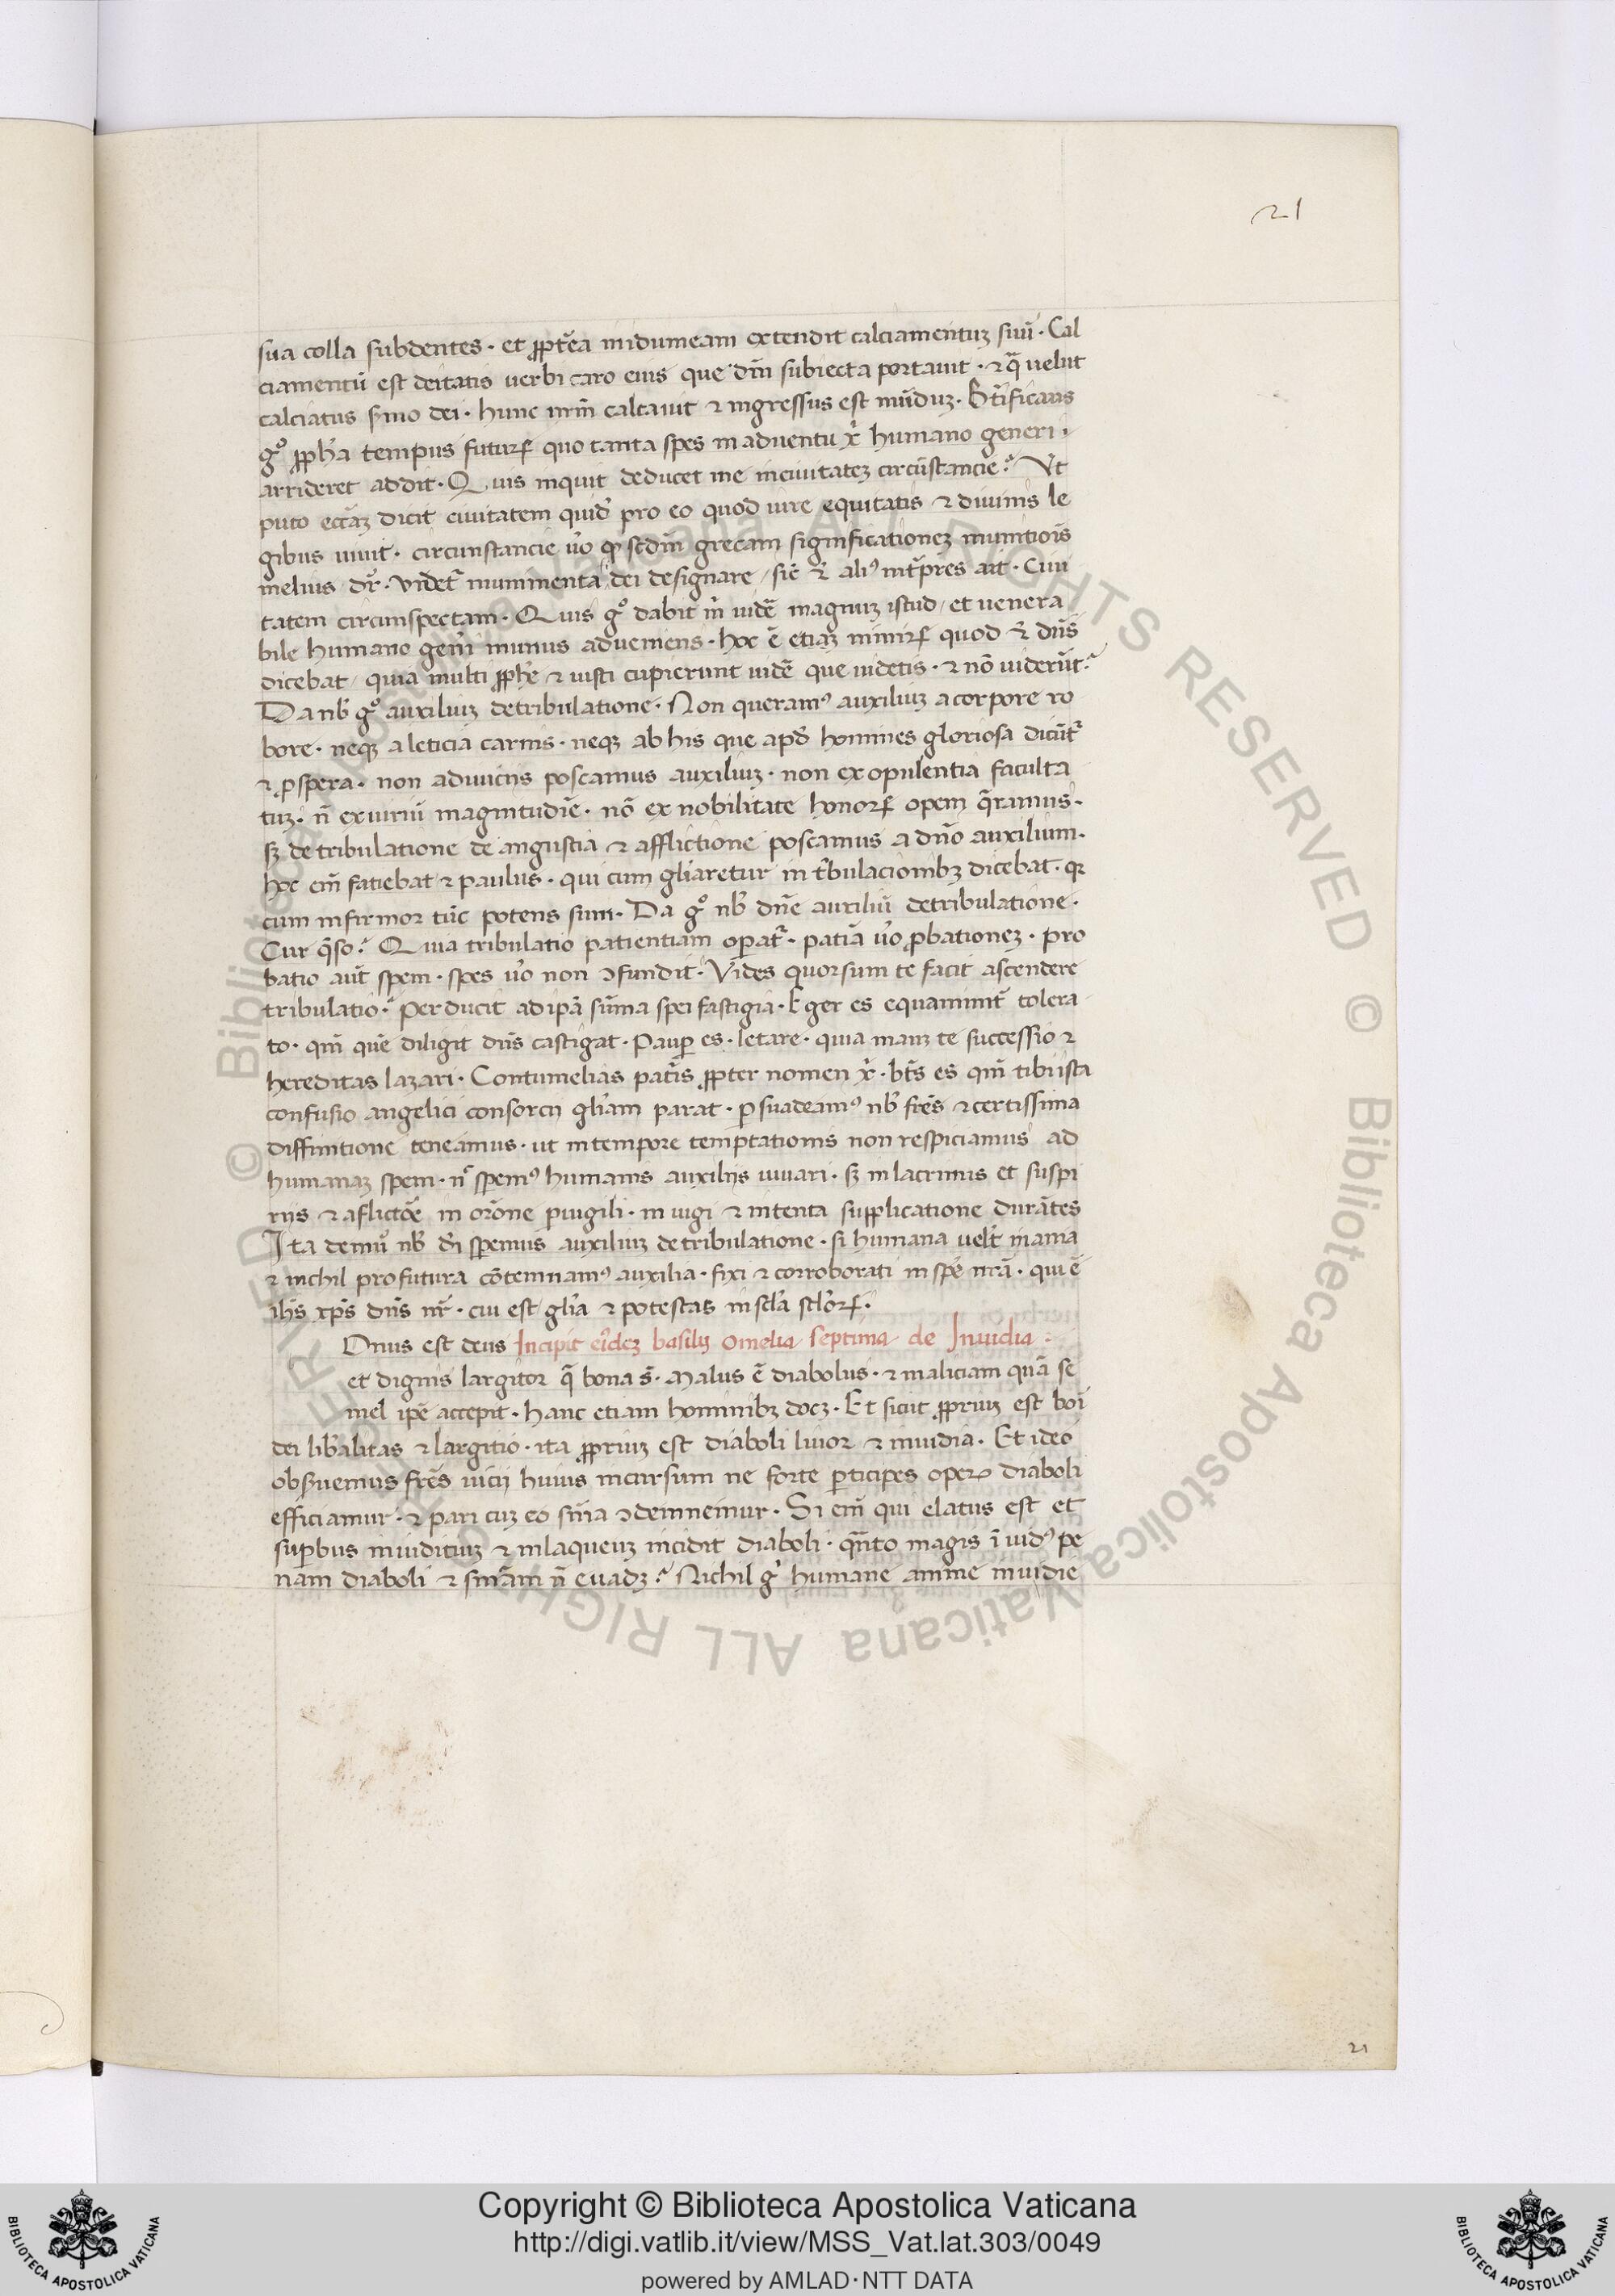 21
sua colla subdentes · et ꝓpt̃ea in idumeam extendit calciamentuꝫ suũ · Cal
ciamentũ est deitatis uerbi caro eius que dñi subiecta portauit · ⁊ q̃ velut
calciatus s̃mo dei · hunc mõ calcauit ⁊ ingressus est mũduꝫ · Btificans
gͦ ꝓph̃a tempus futuꝝ quo tanta spes in aduentu x̃ humano generi ·
arrideret addit · Quis inquit deducet me in ciuitateꝫ circũstancie? Vt
puto eccãꝫ dicit ciuitatem quid̃ pro eo quod iure equitatis ⁊ diuinis le
gibus uiuit · circunstancie ũo qꝫ scdm̃ grecam significationeꝫ munitiõis
melius dr̃ · videt̃ munimenta dei designare / sic̃ ⁊ aliꝰ int̃pres ait · Ciui
tatem circunspectam · Quis gͦ dabit m̃ uidẽ magnuꝫ istud / et uenera
bile humano geñi munus adueniens · hoc ẽ etiaꝫ nimiꝝ quod ⁊ dñs
dicebat / quia multi ꝓphẽ ⁊ iusti cupierunt uidẽ que uidetis · ⁊ nõ uiderũt?
Da nb̃ gͦ auxiliuꝫ de tribulatione · Non queramꝰ auxiliuꝫ a corpore ro
bore · neqꝫ a leticia carnis · neqꝫ ab his que apd̃ homines gloriosa dicũt̃
⁊ ꝓspera · non a diuiciis poscamus auxiliuꝫ · non ex opulentia faculta
tuꝫ · ñ ex uiriũ magnitudiẽ · nõ ex nobilitate honoꝝ opem q̃ramus ·
sꝫ de tribulatione de angustia ⁊ afflictione poscamus a dño auxilium ·
hoc em̃ faciebat ⁊ paulus · qui cum gliãretur in t̃bulacionibꝫ dicebat · qꝛ
cum infirmor tũc potens sum · Da gͦ nb̃ dñe auxiliũ de tribulatione ·
Cur q̃so? Quia tribulatio patientiam opat̃ · patiã ũo ꝓbationeꝫ · pro
batio aut̃ spem · spes ũo non ↄfundit · Vides quorsum te facit ascendere
tribulatio? Perducit ad ip̃ã sũma spei fastigia · Eger es equanimit̃ tolera
to · qm̃ quẽ diligit dñs castigat · Paup̱ es · letare · quia manꝫ te successio ⁊
hereditas lazari · Contumelias pat̃is ꝓpter nomen x̃ · bt̃s es qm̃ tibi ista
confusio angelici consorcij gliãm parat · p̱suadeamꝰ nb̃ frẽs ⁊ certissima
diffinitione teneamus · ut in tempore temptationis non respiciamus ad
humanaꝫ spem · ñ spemꝰ humanis auxilijs iuuari · sꝫ in lacrimis et suspi
rijs ⁊ aflictõe in orõne p̱uigili · in uigi ⁊ intenta supplicatione durãtes
Ita demũ nb̃ dñi spemus auxiliuꝫ de tribulatione · si humana uelt̃ inania
⁊ nichil profutura cõtemnamꝰ auxilia · fixi ⁊ corroborati in spẽ nr̃ã · qui ẽ
ihs̃ xp̃s dñs nr̃ · cui est gliã ⁊ potestas in scl̃a scl̃oꝝ ·
Onus est deus Incipit eid̃eꝫ basilij omelia septima de Inuidia ·
et dignis largitor q̃ bona s̃ · Malus ẽ diabolus · ⁊ maliciam quã se
mel ipẽ accepit · hanc etiam hominibꝫ docꝫ · Et sicut ꝓpriuꝫ est boĩ
dei lib̃alitas ⁊ largitio · ita ꝓpriuꝫ est diaboli liuor ⁊ inuidia · Et ideo
obs̃uemus frẽs uicij huius incursum ne forte p̱ticipes opeꝝ diaboli
efficiamur · ⁊ pari cuꝫ eo sñia ↄdemnemur · Si em̃ qui elatus est et
sup̱bus in iudiciuꝫ ⁊ in laqueuꝫ incidit diaboli · qñto magis ĩuidꝰ pe
nam diaboli ⁊ sniãm ñ euadꝫ? Nichil g̃ humane anime inuidie
21
Copyright © Biblioteca Apostolica Vaticana
http://digi.vatlib.it/view/MSS_Vat.lat.303/0049
powered by AMLAD·NTT DATA
BIBLIOTECA APOSTOLICA VATICANA
BIBLIOTECA APOSTOLICA VATICANA
© Biblioteca Apostolica Vaticana ALL RIGHTS RESERVED © Biblioteca Apostolica Vaticana ALL RIGHTS RESERVED